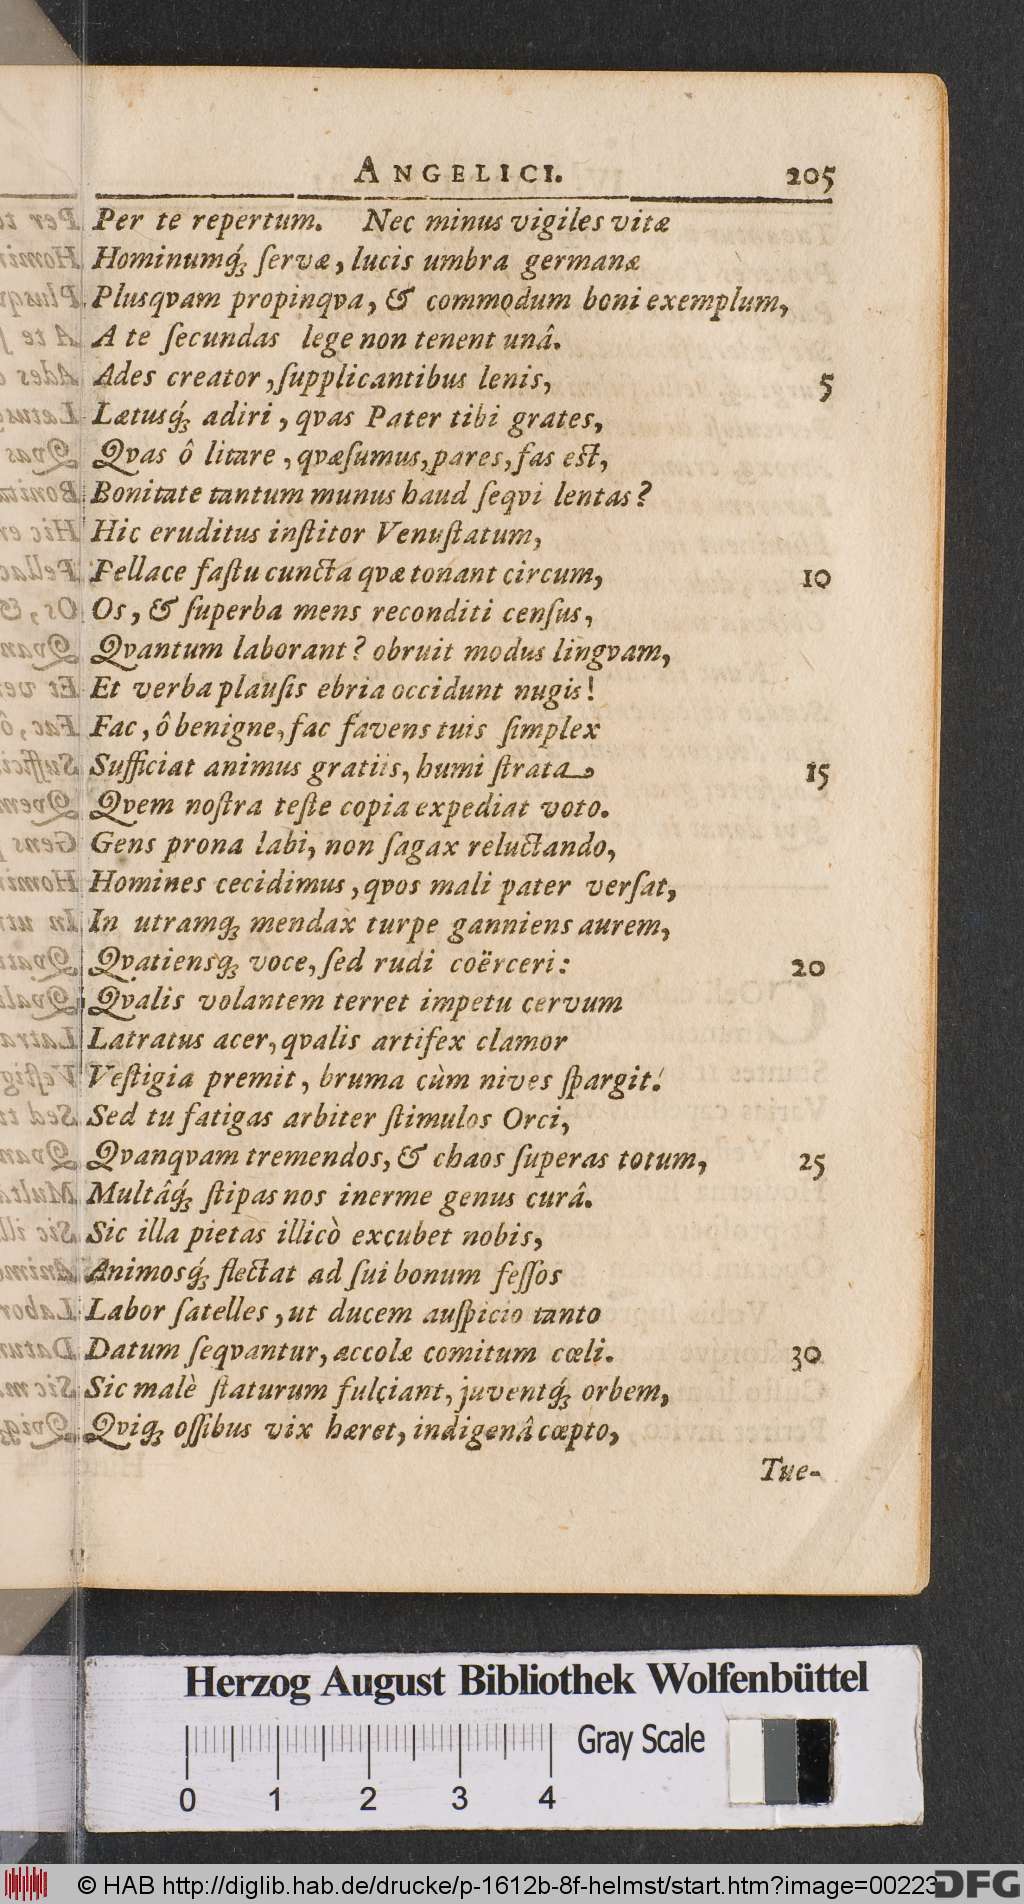 ANGELICI. 205
Per te repertum. Nec minus vigiles vitæ
Hominumq́ꝫ ſervæ, lucis umbra germanæ
Plusqvam propinqva, & commodum boni exemplum,
A te ſecundas lege non tenent unâ.
Ades creator, ſupplicantibus lenis, 5
Lætusq́ꝫ adiri, qvas Pater tibi grates,
Qvas ô litare, qvæſumus, pares, fas eſt,
Bonitate tantum munus haud ſeqvi lentas?
Hic eruditus inſtitor Venuſtatum,
Pellace faſtu cuncta qvæ tonant circum, 10
Os, & ſuperba mens reconditi cenſus,
Qvantum laborant? obruit modus lingvam,
Et verba plauſis ebria occidunt nugis!
Fac, ô benigne, fac favens tuis ſimplex
Sufficiat animus gratiis, humi ſtrata 15
Qvem noſtra teſte copia expediat voto.
Gens prona labi, non ſagax reluctando,
Homines cecidimus, qvos mali pater verſat,
In utramqꝫ mendax turpe ganniens aurem,
Qvatiensqꝫ voce, ſed rudi coërceri: 20
Qvalis volantem terret impetu cervum
Latratus acer, qvalis artifex clamor
Veſtigia premit, bruma cùm nives ſpargit!
Sed tu fatigas arbiter ſtimulos Orci,
Qvanqvam tremendos, & chaos ſuperas totum, 25
Multâq́ꝫ ſtipas nos inerme genus curâ.
Sic illa pietas illicò excubet nobis,
Animosq́ꝫ flectat ad ſui bonum feſſos
Labor ſatelles, ut ducem auſpicio tanto
Datum ſeqvantur, accolæ comitum cœli. 30
Sic malè ſtaturum fulciant, juventq́ꝫ orbem,
Qviqꝫ oſſibus vix hæret, indigenâ cœpto,
Tue-
Herzog August Bibliothek Wolfenbüttel
Gray Scale
0 1 2 3 4
© HAB http://diglib.hab.de/drucke/p-1612b-8f-helmst/start.htm?image=00223
DFG